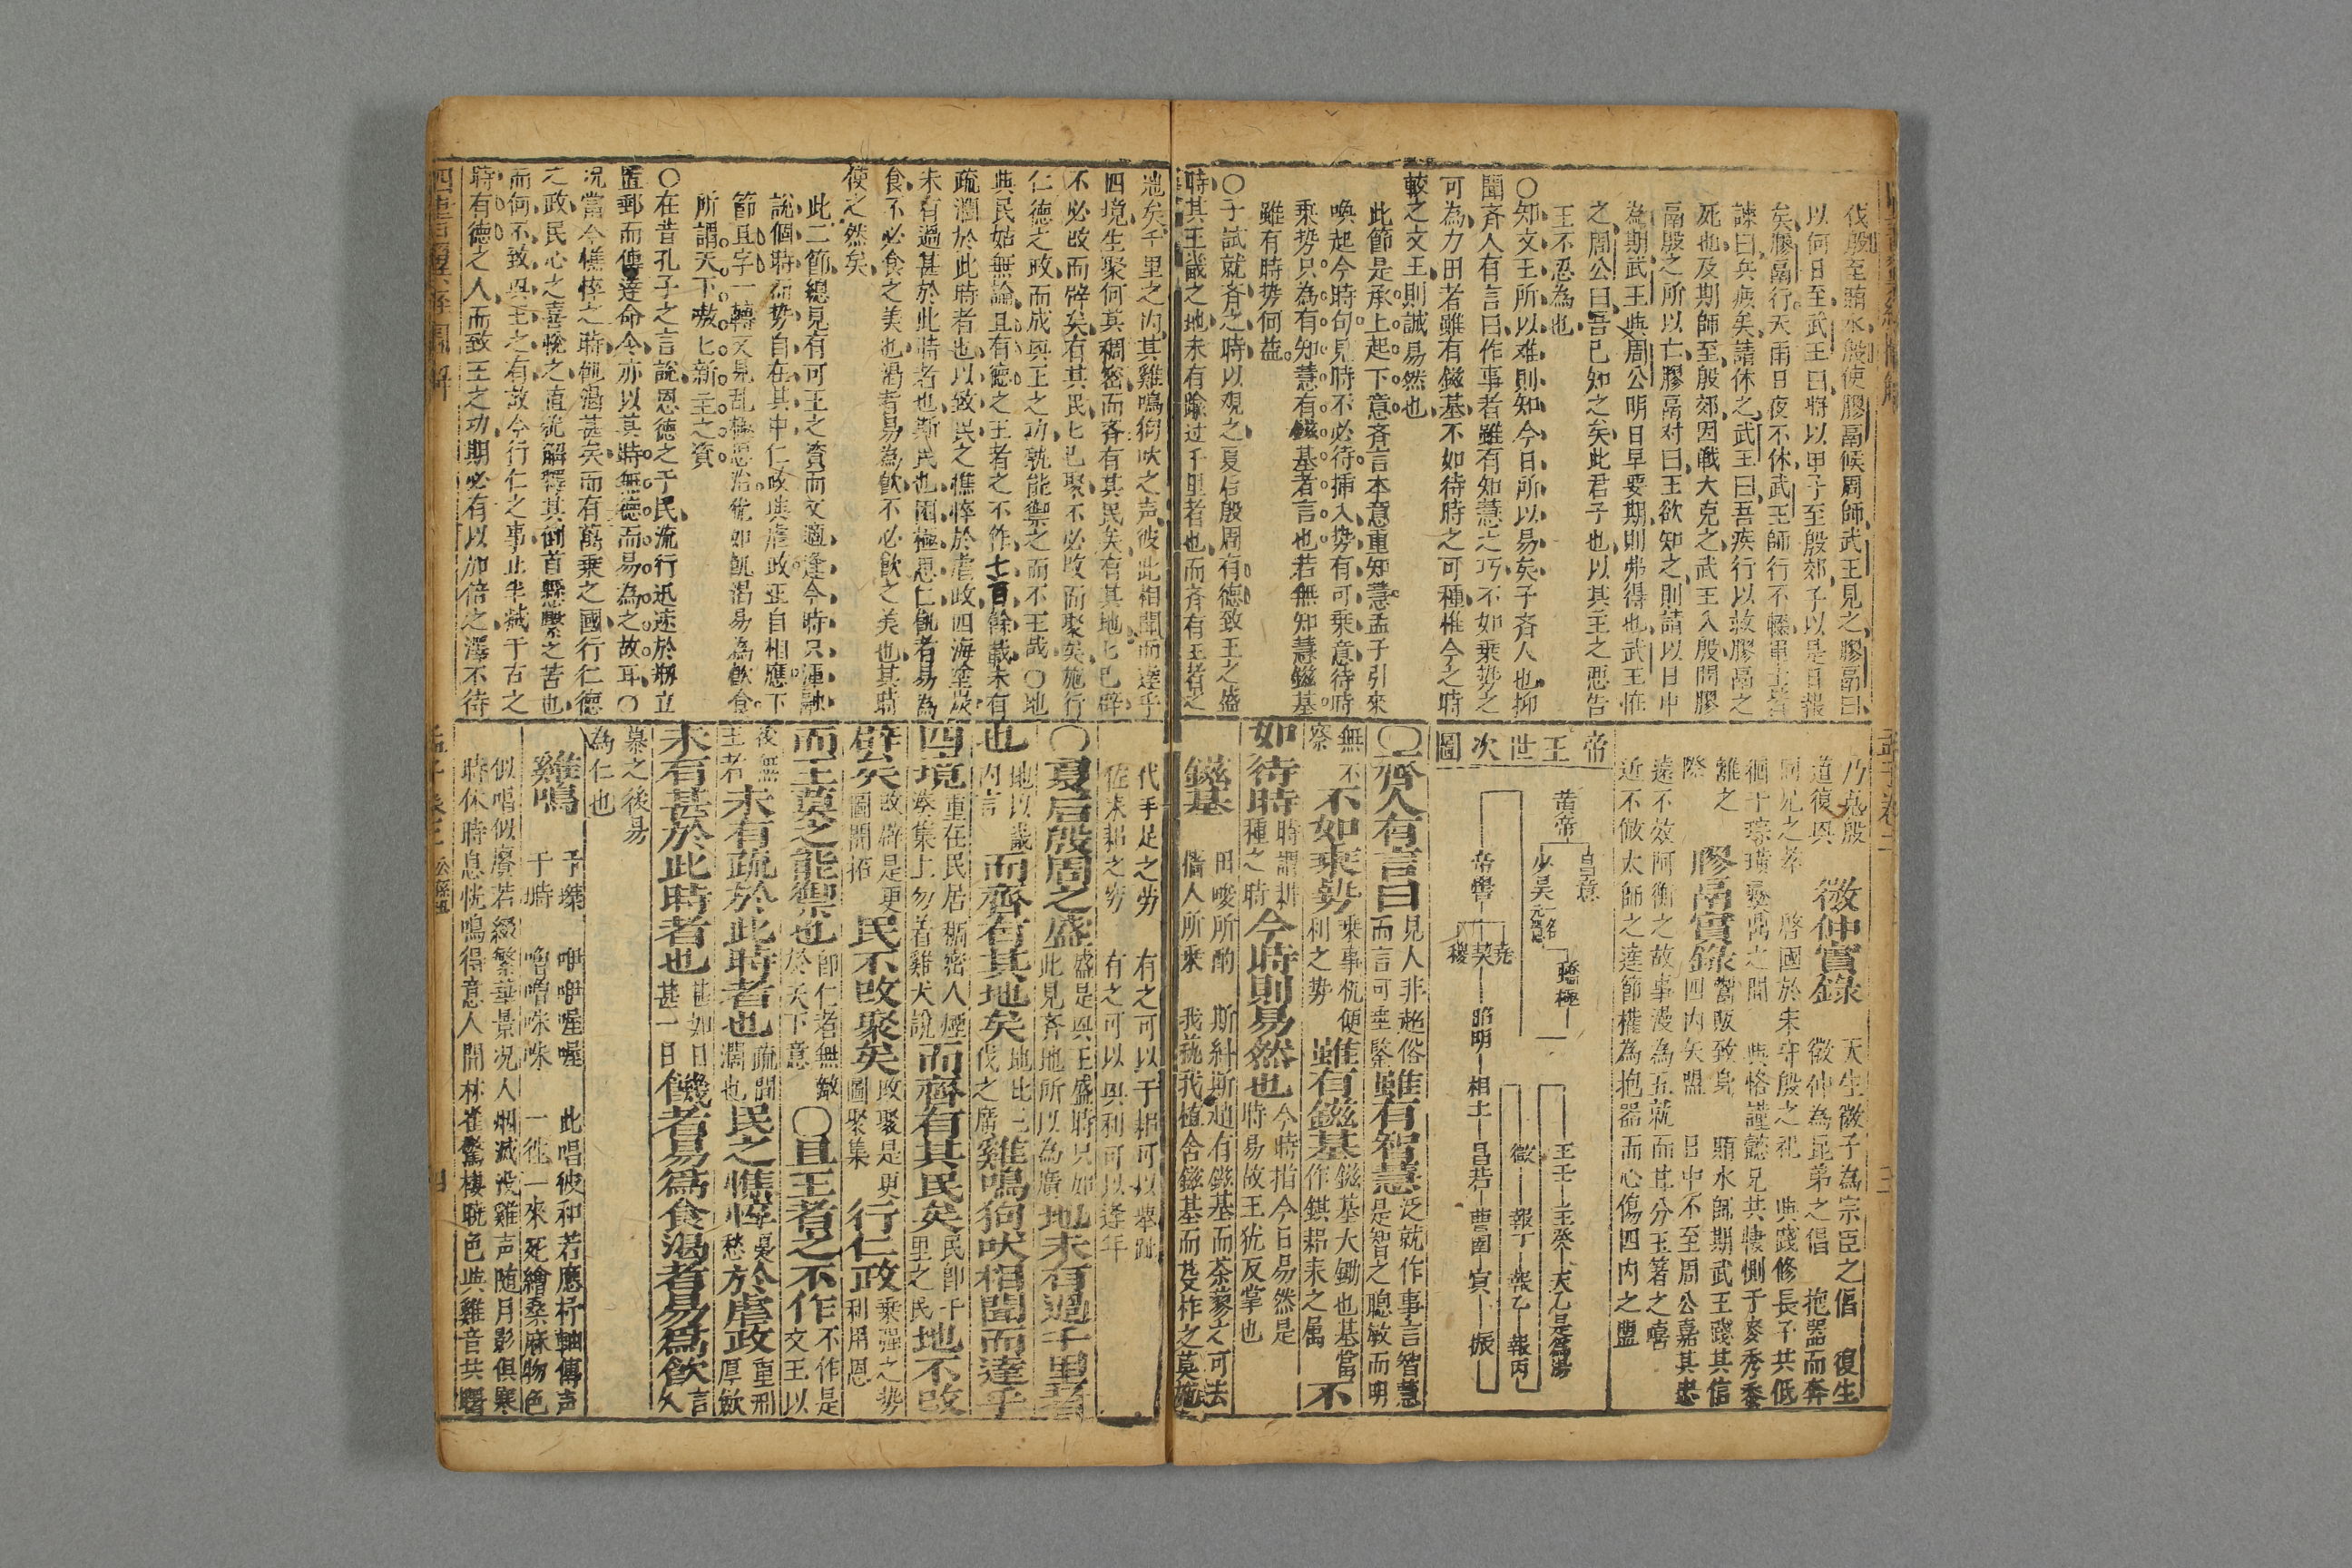 伐殷至鮪水殷使膠鬲候周師武王見之膠鬲曰
以何日至武王曰將以甲子至殷郊子以是日報
矣膠鬲行天雨日夜不休武王師行不輟軍士皆
諫曰兵疾矣請休之武王曰吾疾行以救膠鬲之
死也及期師至殷郊因戰大克之武王入殷問膠
鬲殷之所以亡膠鬲对曰王欲知之則請以日中
為期武王與周公明日早要期則弗得也武王怪
之周公曰吾已知之矣此君子也以其主之惡告
王不忍為也
○知文王所以难則知今日所以易矣子斉人也抑
聞斉人有言曰作事者雖有知慧之巧不如乗势之
可為力田者雖有鎡基不如待時之可種惟今之時
較之文王則誠易然也
此節是承上起下意斉言本意重知慧孟子引來
喚起今時句見時不必待揷入势有可乗意待時
乗势只為有知慧有鎡基者言也若無知慧鎡基
雖有時势何益
○子試就斉之時以观之夏后殷周有德致王之盛
時其王畿之地未有踰过千里者也而斉有王者之
乃翦殷
道復興
微仲實錄
天生微子為宗臣之偪
微仲為昆弟之倡
復生
抱器而奔
啓國於宋守殷之祀
與踐修長子共低
徊于琮璜
與恪謹懿兄共悽惻于麥秀黍
離之
際
膠鬲實錄
鬻販致身
四内矢盟
鮪水師期武王踐其信
日中不至周公嘉其忠
遠不效阿衡之故事漫為五就而甘分玉箸之啼
近不做太師之達節權為抱器而心傷四内之盟
帝王世次圖
黄帝
昌意
少昊
蟜極
帝嚳
堯
契
稷
昭明
相土
昌若
曹圉
冥
振
微
報丁
報乙
報丙
主壬
主癸
天乙是為湯
○齊人有言曰見人非超俗
而言可垂鑒雖有智慧泛就作事言智慧
是智之聰敏而明
無不
察不如乘勢乗事机便
利之势雖有鎡基鎡基大鋤也基當
作錤耜耒之属不
如待時時謂耕
種之時今時則易然也今時指今日易然是
時易故王犹反掌也
鎡基
田畯所酌
偕人所乗
地矣千里之内其雞鳴狗吠之声彼此相聞而達乎
四境生聚何其稠密而斉有其民矣有其地匕已辟
不必改而辟矣有其民匕已聚不必改而聚矣施行
仁德之政而成興王之功孰能禦之而不王哉○地
與民姑無論且有德之王者之不作七百餘載未有
疏濶於此時者也以致民之憔悴於虐政四海塗炭
未有過甚於此時者也斯民也困極思仁飢者易為
食不必食之美也渴者易為飲不必飲之美也其時
使之然矣
此二節總見有可王之資而文適逢今時只渾融
說個時而势自在其中仁政與虐政正自相應下
節且字一轉又見乱極思治犹如飢渴易為飲食
所謂天下嗷匕新主之資
○在昔孔子之言說恩德之于民流行迅速於朔立
置郵而傳達命令亦以其時無德而易為之故耳○
况當今憔悴之時飢渴甚矣而有萬乗之國行仁德
之政民心之喜悅之直犹解釋其倒首懸繫之苦也
而何不致興王之有故今行仁之事止半減于古之
時有德之人而致王之功期必有以加倍之澤不待
代手足之劳
佐耒耜之穷
有之可以于耜可以舉趾
有之可以興利可以逢年
○夏后殷周之盛盛是興王盛時只如
此見斉地所以為廣地未有過千里者
也地以畿
内言而齊有其地矣地比三
代之廣雞鳴狗吠相聞而達乎
四境重在民居稠密人煙
湊集上勿着雞犬說而齊有其民矣民即千
里之民地不改
辟矣改辟是更
圖開拓民不改聚矣改聚是更
圖聚集行仁政乗强之势
利用恩
而王莫之能禦也即仁者無敵
於天下意○且王者之不作不作是
文王以
後無
王者未有疏於此時者也疏間
濶也民之憔悴憂
愁於虐政重刑
厚歛
未有甚於此時者也甚如日
甚一日饑者易爲食渴者易爲飲言
久
暴之後易
為仁也
雞鳴
予塒
于時
咿咿喔喔
嚕嚕咮咮
此唱彼和若應杼軸傳声
一徃一來死繪桑麻物色
似唱似賡若綴繁華景况人烟滅没雞声随月影俱寒
時休時息恍鳴得意人間林雀驚棲晓色與雞音共曙